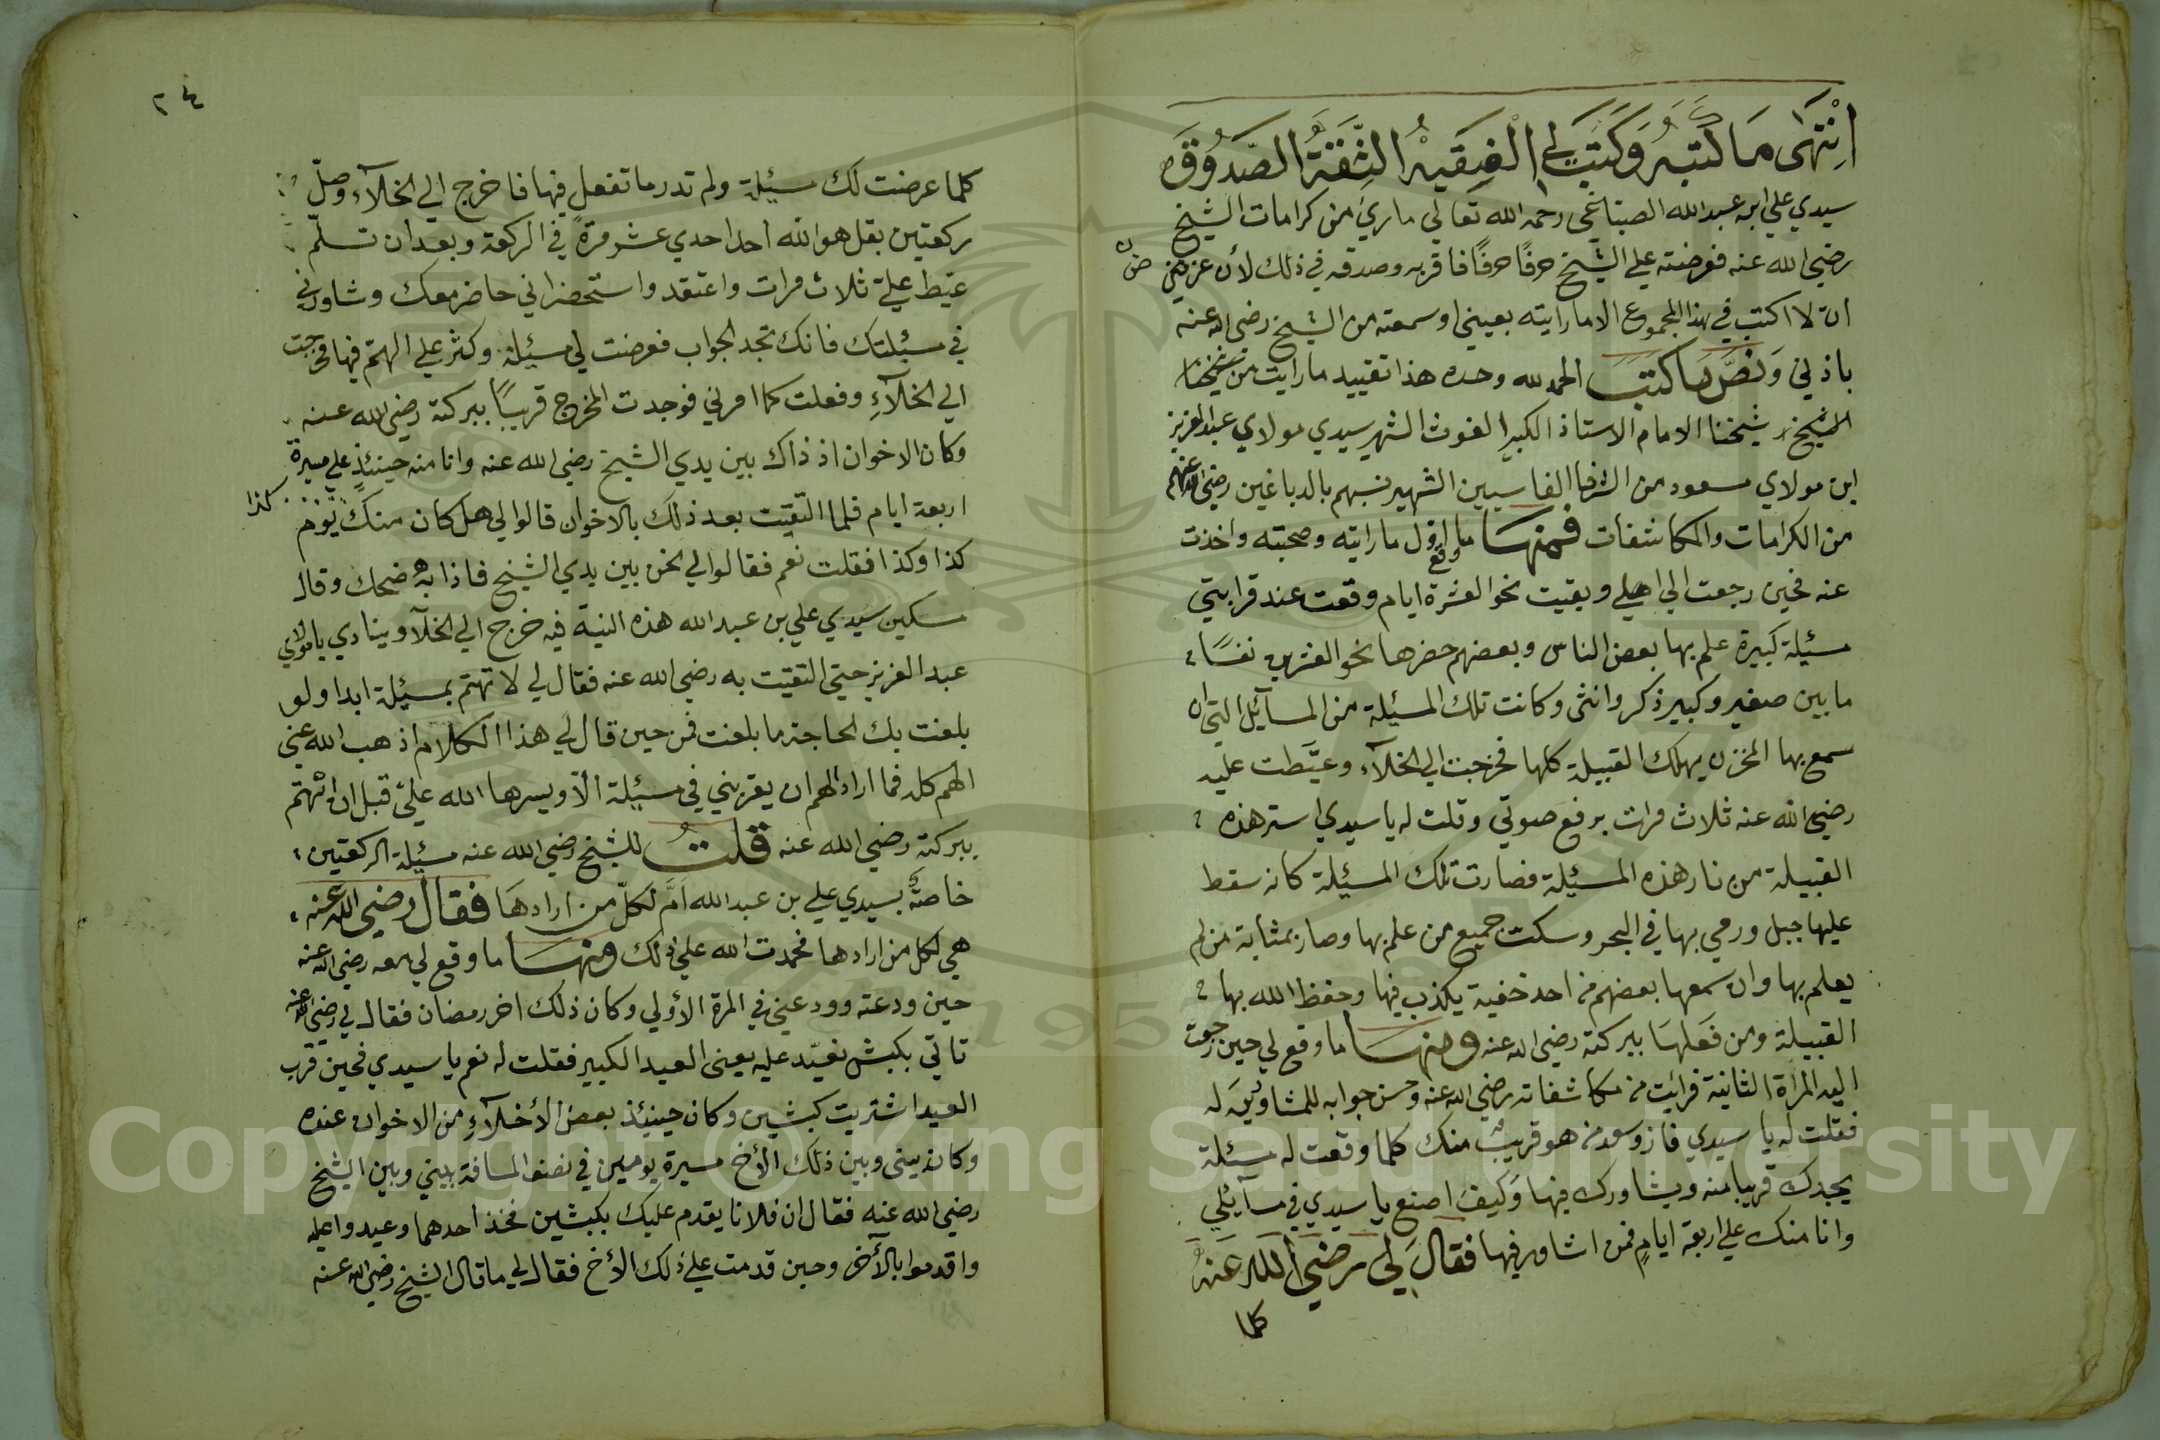 انتهى ما كتبه وكتب لي الفقيه الثقة الصدوق
سيدي علي ابن عبد الله الصباغي رحمه الله تعالي ماراي من كرامات الشيخ
رضي الله عنه فعرضته علي الشيخ حرفا حرفا فاقر به وصدقه في ذلك لأن غرضي
ان لا اكتب في هذا المجموع الا ما رايته بعيني او سمعته من الشيخ رضي الله عنه
باذني ونص ما كتب الحمد لله وحده هذا تقييد ما رايت من شيخنا
الشيخ شيخنا الامام الاستاذ الكبير الغوث الشهير سيدي مولاي عبد العزيز
ابن مولاي مسعود من الشرفا الفاسيين الشهير نسبهم بالدباغين رضي الله عنهم
من الكرامات والمكاشفات فمنها ما وقع اول ما رايته وصحبته واخذت
عنه فحين رجعت الي اهلي وبقيت نحو العشرة ايام وقعت عند قرابتي
مسئلة كبيرة علم بها بعض الناس وبعضهم حضرها نحو العشرين نفسا
ما بين صغير وكبير ذكر وانثى وكانت تلك المسئلة من المسآئل التي ان
سمع بها المخزن يهلك القبيلة كلها فخرجت الي الخلآء وعيّطت عليه
رضي الله عنه ثلاث مرات برفع صوتي وقلت له يا سيدي استر هذه
القبيلة من نار هذه المسئلة فصارت تلك المسئلة كانه سقط
عليها جبل ورمي بها في البحر وسكت جميع من علم بها وصار بمثابة من لم
يعلم بها وان سمعها بعضهم من احد خفية يكذب فيها وحفظ الله بها
القبيلة ومن فعلها ببركته رضي الله عنه ومنها ما وقع لي حين رجعت
اليه المرأة الثانية فرائت من مكاشفاته رضي الله عنه وحسن جوابه للمشاورين له
فقلت له يا سيدي فاز وسعد من هو قريب منك كلما وقعت له مسئلة
يجدك قريبا منه ويشاورك فيها وكيف اصنع يا سيدي في مسآئلي
وانا منك علي اربعة ايام فمن اشاور فيها فقال لي رضي الله عنه
كلما
٢٤
كلما عرضت لك مسئلة ولم تدر ما تفعل فيها فاخرج الي الخلآء وصلّ
ركعتين بقل هو الله احد احدي عشر مرة في الركعة وبعد ان تسلّم
عيّط عليّ ثلاث مرات واعتقد واستحضر اني حاضر معك وشاورني
في مسئلتك فانك تجد الجواب فعرضت لي مسئلة وكثر علي الهمّ فيها فخرجت
الي الخلآء وفعلت كما امرني فوجدت المخرج قريبا ببركته رضي الله عنه
وكان الاخوان اذ ذاك بين يدي الشيخ رضي الله عنه وانا منه حينئذ علي مسيرة
اربعة ايام فلما التقيت بعد ذلك بالاخوان قالوا لي هل كان منك يوم
كذا
كذا وكذا فقلت نعم فقالوا لي نحن بين يدي الشيخ فاذا به ضحك وقال
مسكين سيدي علي بن عبد الله هذه النية فيه خرج الي الخلآ وينادي يا مولاي
عبد العزيز حتي التقيت به رضي الله عنه فقال لي لا تهتم بمسئلة ابدا ولو
بلغت بك الحاجة ما بلغت فمن حين قال لي هذا الكلام اذهب الله عني
الهم كله فما اراد الهم ان يقربني في مسئلة الا ويسرها الله عليّ قبل ان اهتم
ببركته رضي الله عنه قلت للشيخ رضي الله عنه مسئلة الركعتين
خاصة بسيدي علي بن عبد الله ام لكل من ارادها فقال رضي الله عنه
هي لكل من ارادها فحمدت الله علي ذلك ومنها ما وقع لي معه رضي الله عنه
حين ودعته وودعني في المرة الأولي وكان ذلك اخر رمضان فقال لي رضي الله عنه
تاتي بكبش نعيّد عليه يعني العيد الكبير فقلت له نعم يا سيدي فحين قرب
العيد اشتريت كبشين وكان حينئذ بعض الأخلآء من الاخوان عنده
وكان بيني وبين ذلك الأخ مسيرة يومين في نصف المسافة بيني وبين الشيخ
رضي الله عنه فقال ان فلانا يقدم عليك بكبشين فخذ احدهما وعيد واعليه
واقدموا بالآخر وحين قدمت علي ذلك الأخ فقال لي ما قال الشيخ رضي الله عنه
Copyright © King Saud University
1957